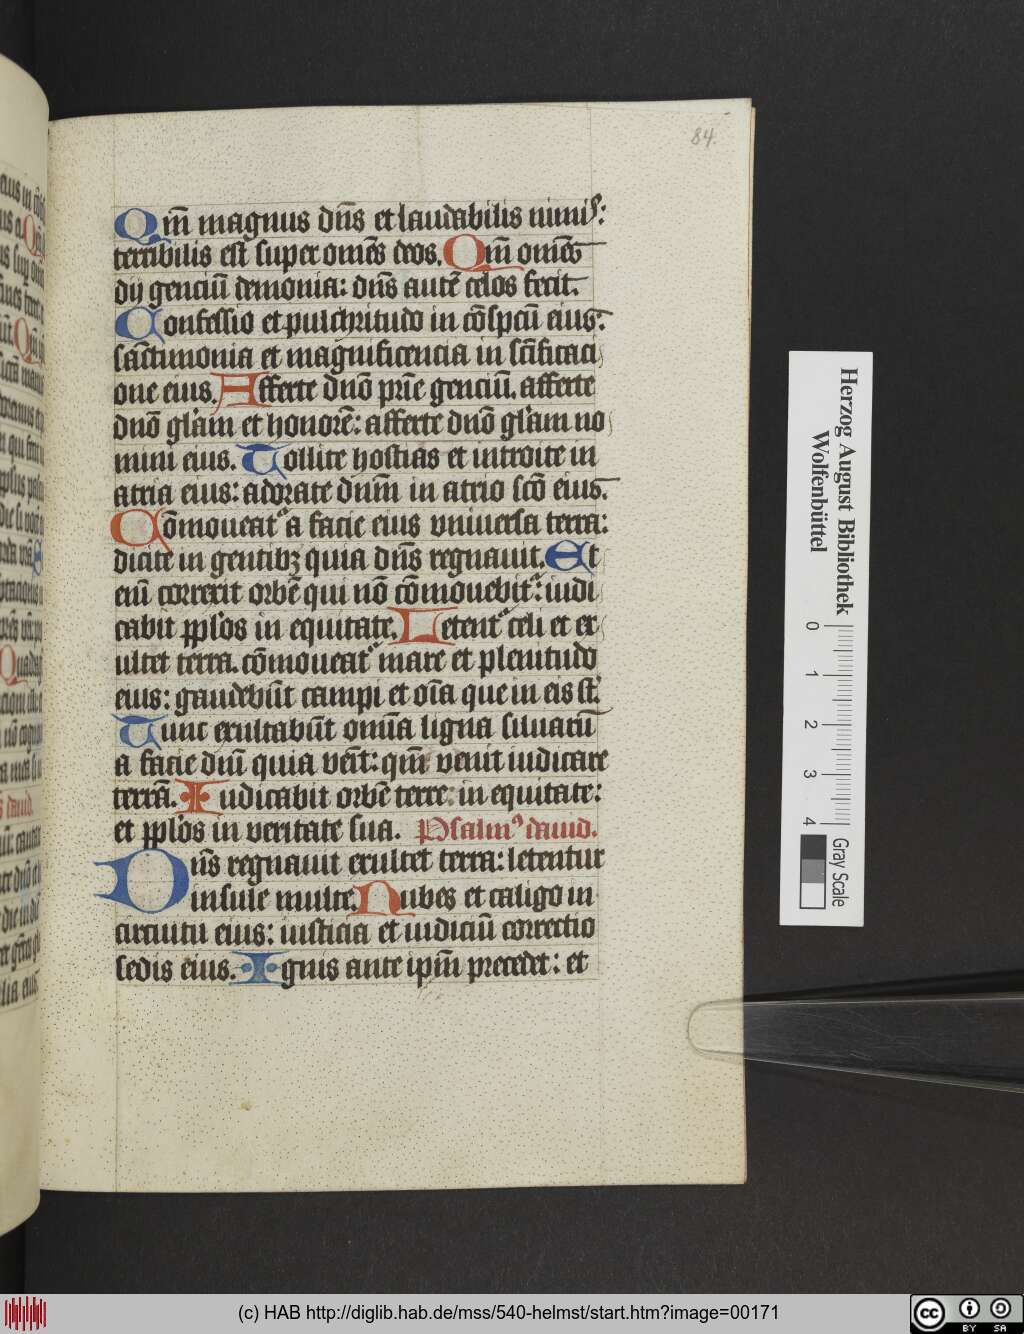 84.
Qm̄ magnus dn̄s et laudabilis nimis:
terribilis est super omēs deos. Qm̄ omēs
dij genciū demonia: dn̄s autē celos fecit.
Confessio et pulchritudo in cōspcū eius:
sāctimonia et magnificencia in scīficaci
one eius. Afferte dnō prīe genciū. afferte
dnō glam et honorē: afferte dnō glam no
mini eius. Tollite hostias et introite in
atria eius: adorate dnm̄ in atrio scō eius.
Cōmoueat᷑ a facie eius vniuersa terra:
dicite in gentibꝫ quia dn̄s regnauit. Et
eni̅ correxit orbē qui nō cōmouebit᷑: iudi
cabit pplos in equitate. Letent᷑ celi et ex
ultet terra. cōmoueat᷑ mare et plenitudo
eius: gaudebūt campi et oīa que in eis st̄.
Tunc exultabūt omīa ligna siluarū
a facie dnī quia venit: qm̄ venit iudicare
terrā. Iudicabit orbē terre: in equitate:
et pplos in veritate sua. Psalmꝰ dauid.
Dn̄s regnauit exultet terra: letentur
insule multe. Nubes et caligo in
circuitu eius: iusticia et iudiciū correctio
sedis eius. Ignis ante ipm̄ precedet: et
Herzog August Bibliothek
Wolfenbüttel
0 1 2 3 4
Gray Scale
(c) HAB http://diglib.hab.de/mss/540-helmst/start.htm?image=00171
cc BY SA